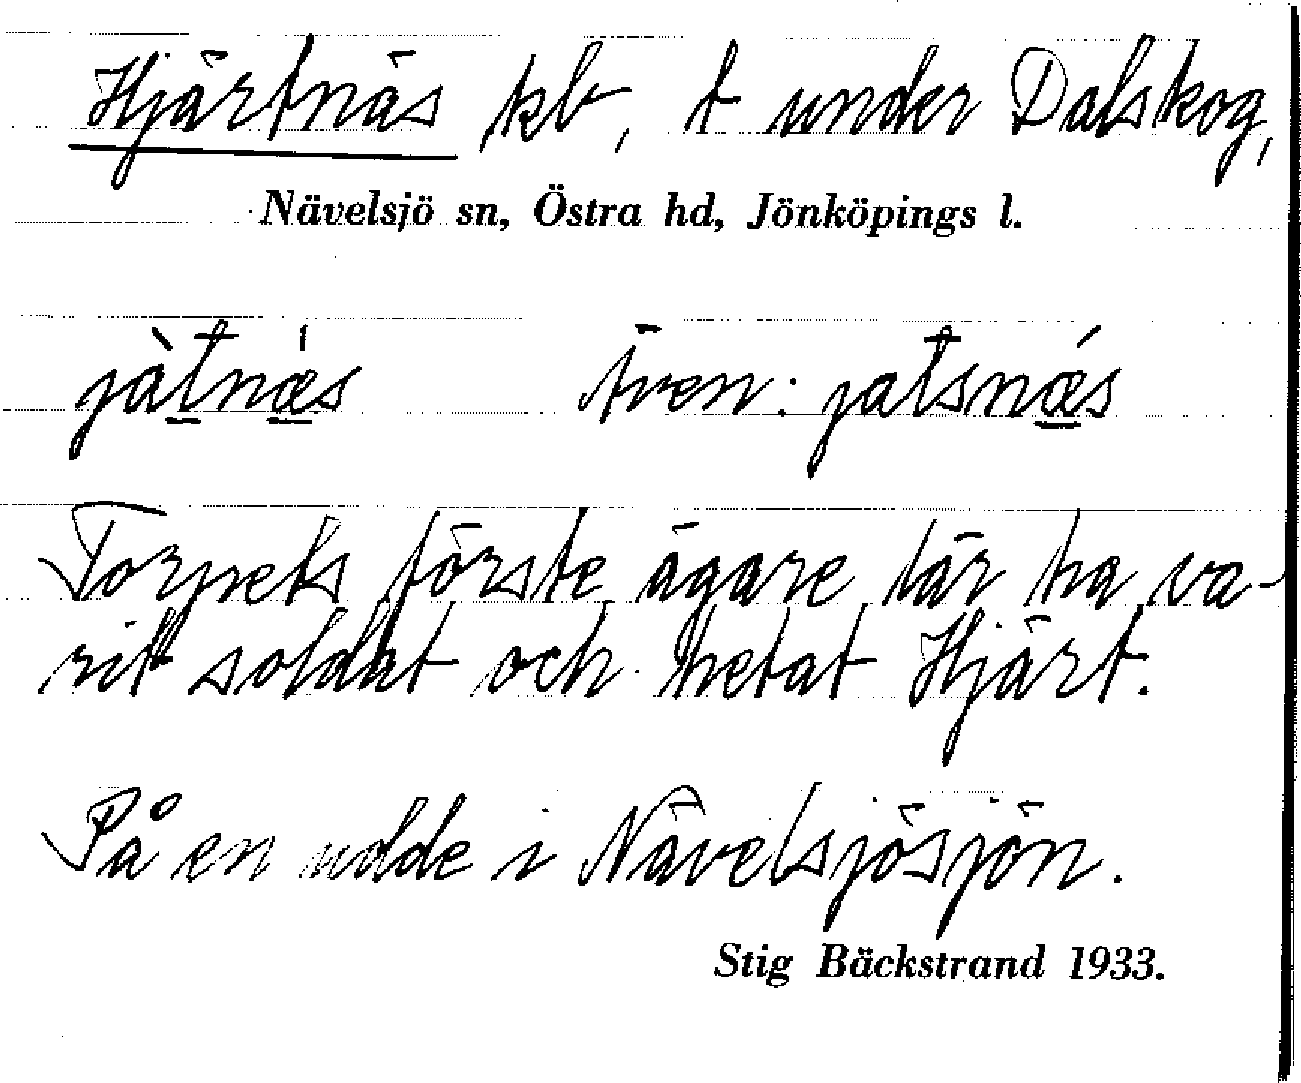 Hjärtnäs kb, t under Dalskog,
Nävelsjö sn, Östra hd, Jönköpings l.
jàtnǽs även: jatsnǽs
Torpets förste ägare lär ha va-
rit soldat och hetat Hjärt.
På en udde i Nävelsjösjön.
Stig Bäckstrand 1933.